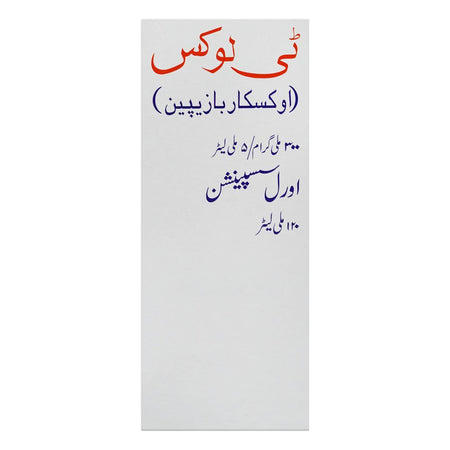 ٹی لوکس
(اوکسکاربازیپین)
۳۰۰ ملی گرام/۵ ملی لیٹر
اورل سسپینشن
۱۲۰ ملی لیٹر